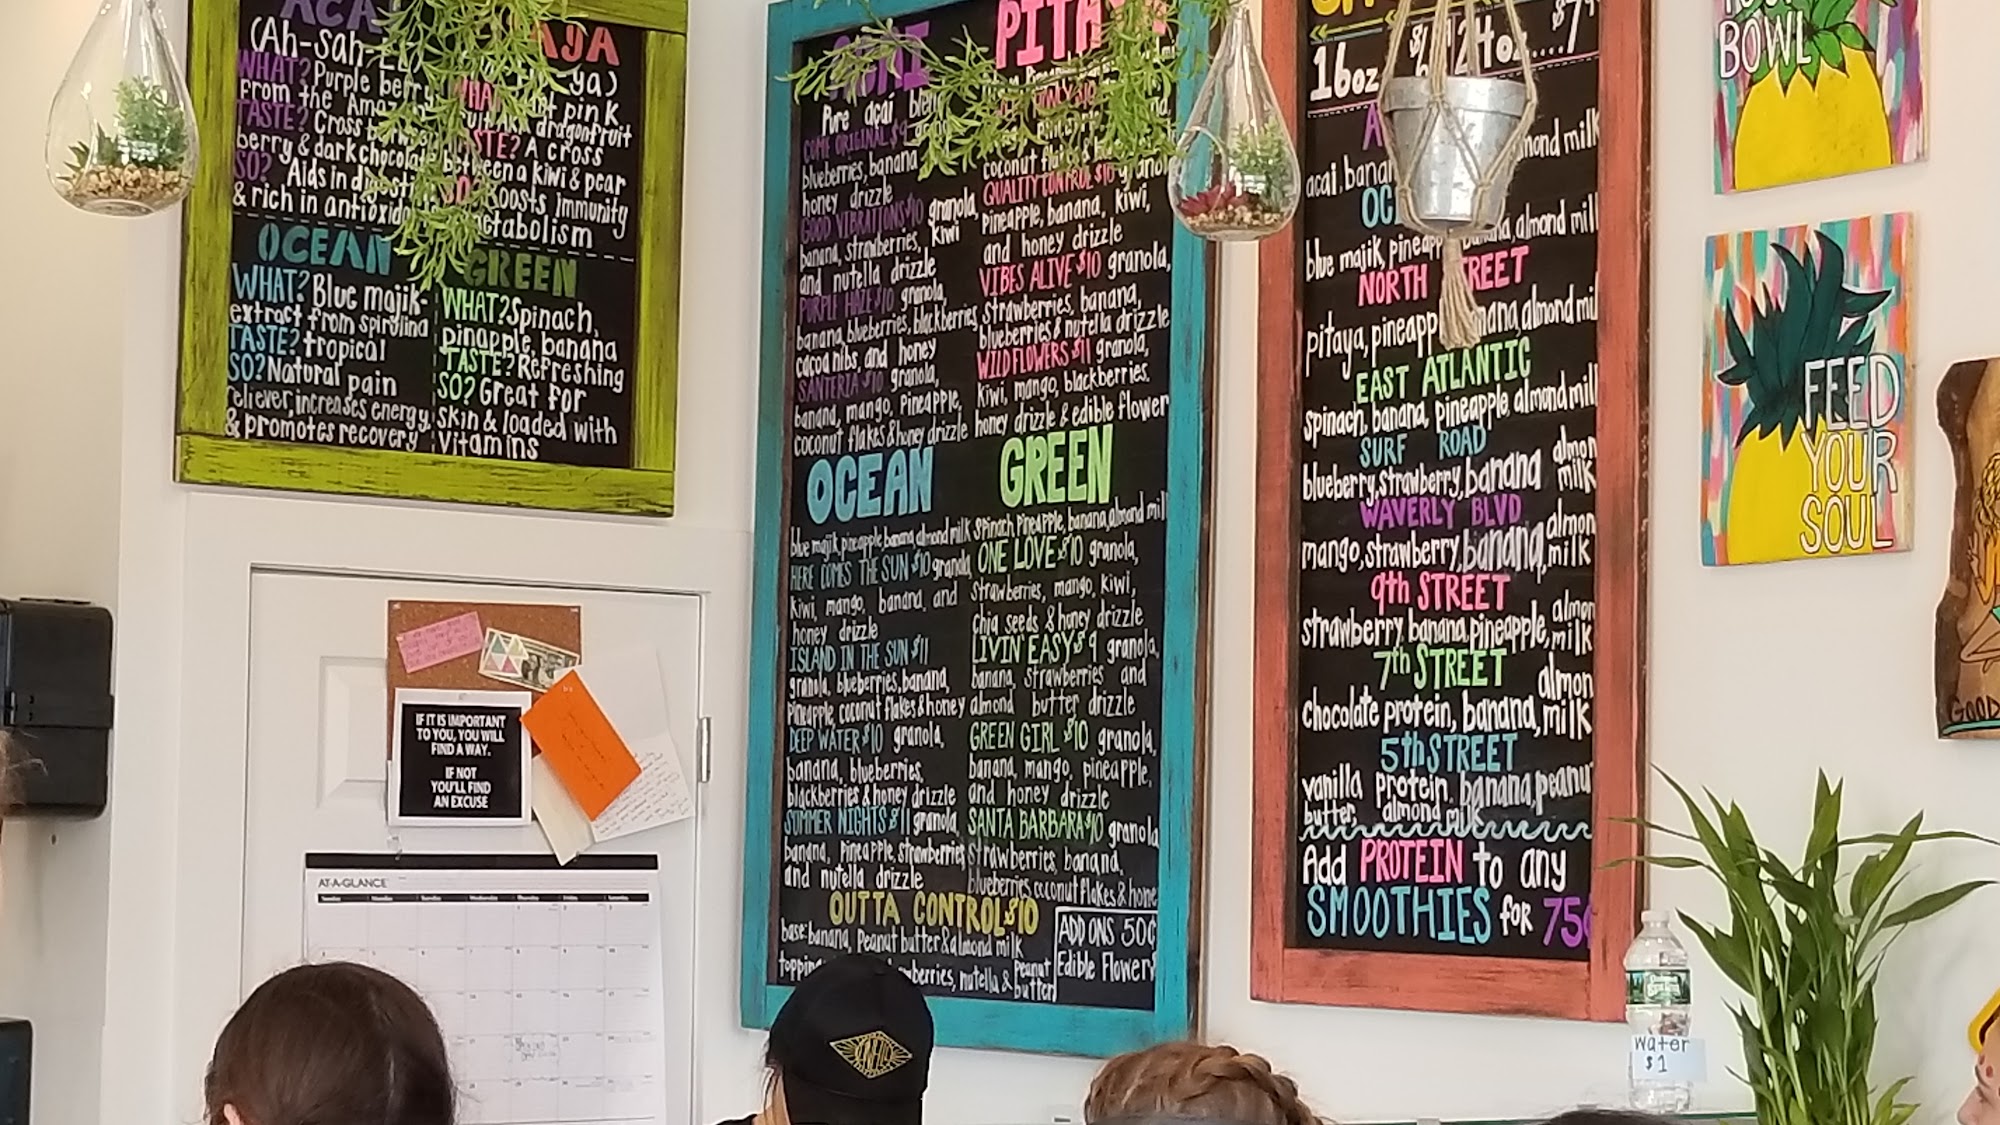 ACAI
(Ah-sah-
WHAT? Purple berry
from the Amaz
TASTE? Cross between
berry & dark chocolate
SO? Aids in digesti
& rich in antioxidan
ya)
pink
dragonfruit
TASTE? A cross
between a kiwi & pear
SO? Boosts immunity
metabolism
OCEAN
WHAT? Blue majik-
extract from spirulina
TASTE? tropical
SO? Natural pain
reliever, increases energy,
& promotes recovery
GREEN
WHAT? Spinach,
pinapple, banana
TASTE? Refreshing
SO? Great for
skin & loaded with
vitamins
ACAI
Pure açai blend
COME ORIGINAL $9
blueberries, banana
honey drizzle
GOOD VIBRATIONS $10 granola,
banana, strawberries, kiwi
and nutella drizzle
PURPLE HAZE $10 granola,
banana, blueberries, blackberries,
cacao nibs, and honey
SANTERIA $10 granola,
banana, mango, pineapple,
coconut flakes & honey drizzle
PITAYA
coconut flakes &
QUALITY CONTROL $10 granola
pineapple, banana, kiwi,
and honey drizzle
VIBES ALIVE $10 granola,
strawberries, banana,
blueberries & nutella drizzle
WILDFLOWERS $11 granola,
kiwi, mango, blackberries,
honey drizzle & edible flower
OCEAN
blue majik, pineapple, banana, almond milk
HERE COMES THE SUN $10 granola
kiwi, mango, banana, and
honey drizzle
ISLAND IN THE SUN $11
granola, blueberries, banana,
pineapple, coconut flakes & honey
DEEP WATER $10 granola,
banana, blueberries,
blackberries & honey drizzle
SUMMER NIGHTS $11 granola,
banana, pineapple, strawberries
and nutella drizzle
GREEN
spinach, pineapple, banana, almond mil
ONE LOVE $10 granola,
strawberries, mango, kiwi,
chia seeds & honey drizzle
LIVIN' EASY $9 granola,
banana, strawberries and
almond butter drizzle
GREEN GIRL $10 granola,
banana, mango, pineapple,
and honey drizzle
SANTA BARBARA $10 granola
strawberries, banana,
blueberries, coconut flakes & hone
OUTTA CONTROL $10
base: banana, peanut butter & almond milk
topping berries, nutella & peanut
butter
ADD ONS 50¢
Edible Flower
16oz 24oz....$7
mond milk
acai, banan
blue majik, pineapp banana, almond mil
NORTH STREET
pitaya, pineapple banana, almond mil
EAST ATLANTIC
spinach, banana, pineapple, almond mil
SURF ROAD
blueberry, strawberry, banana almon
milk
WAVERLY BLVD
mango, strawberry, banana, almon
milk
9th STREET
strawberry, banana, pineapple, almon
milk
7th STREET
chocolate protein, banana, almon
milk
5th STREET
vanilla protein, banana, peanu
butter, almond milk
Add PROTEIN to any
SMOOTHIES for 75¢
BOWL
FEED
YOUR
SOUL
GOOD
IF IT IS IMPORTANT
TO YOU, YOU WILL
FIND A WAY.
IF NOT
YOU'LL FIND
AN EXCUSE
AT-A-GLANCE
water
$1